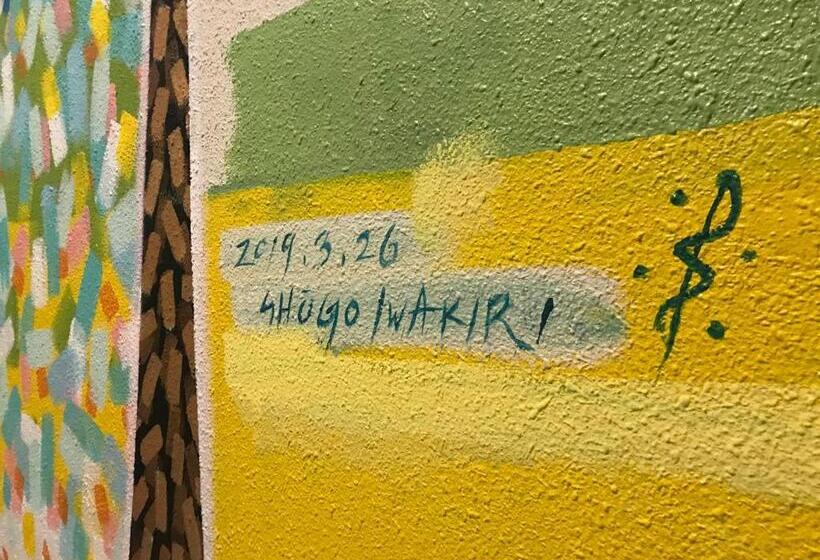 2019.3.26
SHŪGO IWAKIRI